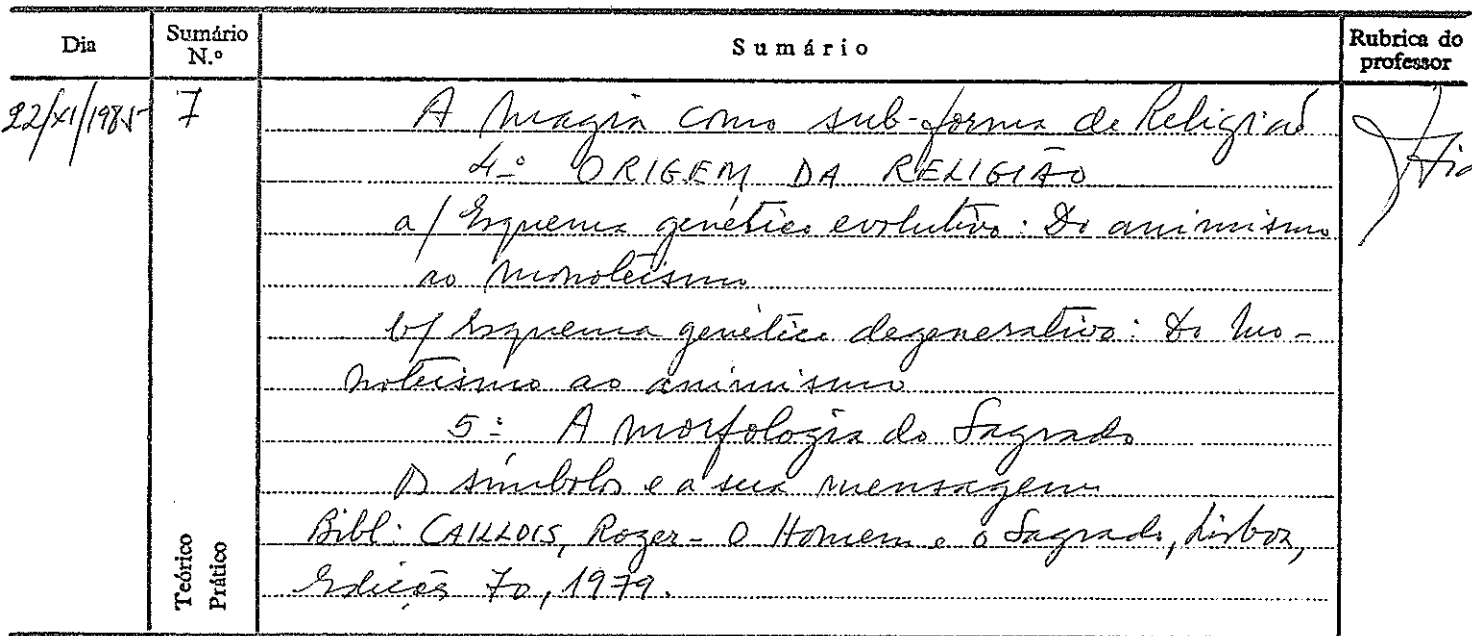 Dia
Sumário N.º
Sumário
Rubrica do professor
22/XI/1985
7
A magia como sub-forma de Religião
4º ORIGEM DA RELIGIÃO
a/ Esquema genético evolutivo: Do animismo
ao monoteísmo
b/ Esquema genético degenerativo: Do mo-
noteísmo ao animismo
5º A morfologia do Sagrado
Os símbolos e a sua mensagem
Bibl: CAILLOIS, Roger - O Homem e o Sagrado, Lisboa,
Edições 70, 1979.
Teórico
Prático